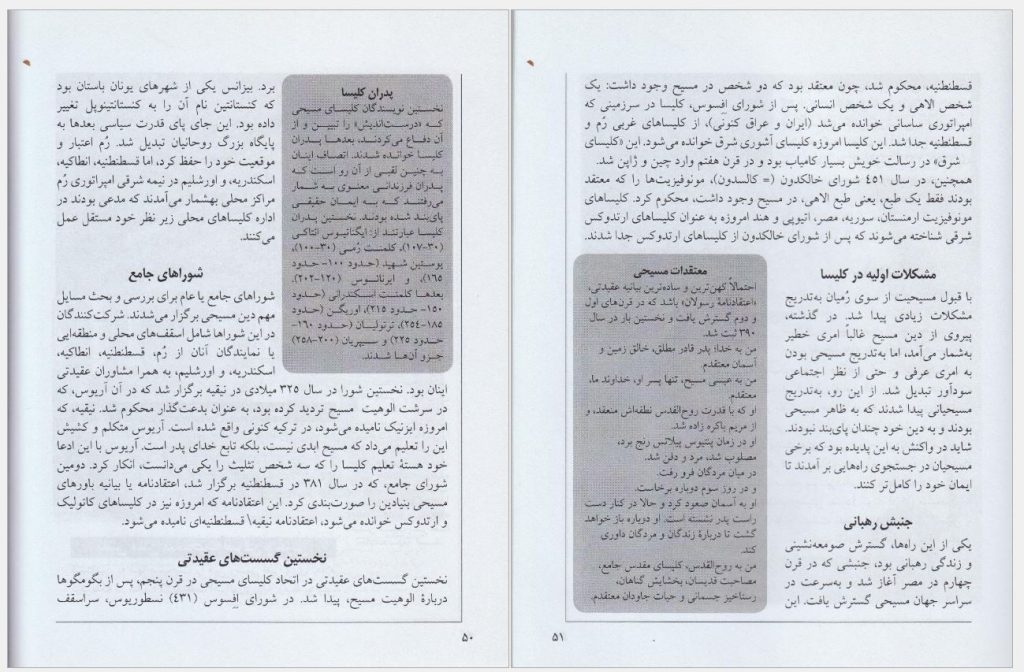 برد. بیزانس یکی از شهرهای یونان باستان بود
که کنستانتین نام آن را به کنستانتینوپل تغییر
داده بود. این جای پای قدرت سیاسی بعدها به
پایگاه بزرگ روحانیان تبدیل شد. رُم اعتبار و
موقعیت خود را حفظ کرد، اما قسطنطنیه، انطاکیه،
اسکندریه، و اورشلیم در نیمه شرقی امپراتوری رُم
مراکز محلی بهشمار می‌آمدند که مدعی بودند در
اداره کلیساهای محلی زیر نظر خود مستقل عمل
می‌کنند.
شوراهای جامع
شوراهای جامع یا عام برای بررسی و بحث مسایل
مهم دین مسیحی برگزار می‌شدند. شرکت‌کنندگان
در این شوراها شامل اسقف‌های محلی و منطقه‌ایی
یا نمایندگان آنان از رُم، قسطنطنیه، انطاکیه،
اسکندریه، و اورشلیم، به همرا مشاوران عقیدتی
اینان بود. نخستین شورا در سال ۳۲۵ میلادی در نیقیه برگزار شد که در آن آریوس، که
در سرشت الوهیت مسیح تردید کرده بود، به عنوان بدعت‌گذار محکوم شد. نیقیه، که
امروزه ایزنیک نامیده می‌شود، در ترکیه کنونی واقع شده است. آریوس متکلم و کشیش
این را تعلیم می‌داد که مسیح ابدی نیست، بلکه تابع خدای پدر است. آریوس با این ادعا
خود هستهٔ تعلیم کلیسا را که سه شخص تثلیث را یکی می‌دانست، انکار کرد. دومین
شورای جامع، که در سال ۳۸۱ در قسطنطنیه برگزار شد، اعتقادنامه یا بیانیه باورهای
مسیحی بنیادین را صورت‌بندی کرد. این اعتقادنامه که امروزه نیز در کلیساهای کاتولیک
و ارتدوکس خوانده می‌شود، اعتقادنامه نیقیه\ قسطنطنیه‌ای نامیده می‌شود.
نخستین گسست‌های عقیدتی
نخستین گسست‌های عقیدتی در اتحاد کلیسای مسیحی در قرن پنجم، پس از بگومگوها
دربارهٔ الوهیت مسیح، پیدا شد. در شورای اِفِسوس (٤٣١) نسطوریوس، سراسقف
پدران کلیسا
نخستین نویسندگان کلیسای مسیحی
که «درست‌اندیش» را تبیین و از
آن دفاع می‌کردند، بعدها پدران
کلیسا خوانده شدند. اتصاف اینان
به چنین لقبی از آن رو است که
پدران فرزندانی معنوی به شمار
می‌رفتند که به ایمان حقیقی
پای‌بند شده بودند. نخستین پدران
کلیسا عبارتند از: ایگناتیوس انتاکی
(۳۰-۱۰۷)، کلمنت رُمی (۳۰-۱۰۰)،
یوستین شهید (حدود ۱۰۰- حدود
۱۶۵)، و ایرنائوس (۱۲۰-۲۰۲).
بعدها کلمنت اسکندرانی (حدود
۱۵۰- حدود ۲۱۵)، اوریگن (حدود
۱۸۵-۲۵٤)، ترتولیان (حدود ۱۶۰-
حدود ۲۲۵) و سیپریان (۲۰۰-۲۵۸)
جزو آن‌ها شدند.
۵۰
قسطنطنیه، محکوم شد، چون معتقد بود که دو شخص در مسیح وجود داشت: یک
شخص الاهی و یک شخص انسانی. پس از شورای اِفِسوس، کلیسا در سرزمینی که
امپراتوری ساسانی خوانده می‌شد (ایران و عراق کنونی)، از کلیساهای غربی رُم و
قسطنطنیه جدا شد. این کلیسا امروزه کلیسای آشوری شرق خوانده می‌شود. این «کلیسای
شرق» در رسالت خویش بسیار کامیاب بود و در قرن هفتم وارد چین و ژاپن شد.
همچنین، در سال ٤٥١ شورای خالکدون (= کالسدون)، مونوفیزیت‌ها را که معتقد
بودند فقط یک طبع، یعنی طبع الاهی، در مسیح وجود داشت، محکوم کرد. کلیساهای
مونوفیزیت ارمنستان، سوریه، مصر، اتیوپی و هند امروزه به عنوان کلیساهای ارتدوکس
شرقی شناخته می‌شوند که پس از شورای خالکدون از کلیساهای ارتدوکس جدا شدند.
مشکلات اولیه در کلیسا
با قبول مسیحیت از سوی رُمیان به‌تدریج
مشکلات زیادی پیدا شد. در گذشته،
پیروی از دین مسیح غالباً امری خطیر
به‌شمار می‌آمد، اما به‌تدریج مسیحی بودن
به امری عرفی و حتی از نظر اجتماعی
سودآور تبدیل شد. از این رو، به‌تدریج
مسیحیانی پیدا شدند که به ظاهر مسیحی
بودند و به دین خود چندان پای‌بند نبودند.
شاید در واکنش به این پدیده بود که برخی
مسیحیان در جستجوی راه‌هایی بر آمدند تا
ایمان خود را کامل‌تر کنند.
جنبش رهبانی
یکی از این راه‌ها، گسترش صومعه‌نشینی
و زندگی رهبانی بود، جنبشی که در قرن
چهارم در مصر آغاز شد و به‌سرعت در
سراسر جهان مسیحی گسترش یافت. این
معتقدات مسیحی
احتمالاً کهن‌ترین و ساده‌ترین بیانیه عقیدتی،
«اعتقادنامهٔ رسولان» باشد که در قرن‌های اول
و دوم گسترش یافت و نخستین بار در سال
۳۹۰ ثبت شد.
من به خدا؛ پدر قادر مطلق، خالق زمین و
آسمان معتقدم.
من به عیسی مسیح، تنها پسر او، خداوند ما،
معتقدم.
او که با قدرت روح‌القدس نطفه‌اش منعقد، و
از مریم باکره زاده شد.
او در زمان پنتیوس پیلاتس رنج برد،
مصلوب شد، مرد و دفن شد.
در میان مردگان فرو رفت.
و در روز سوم دوباره برخاست.
او به آسمان صعود کرد و حالا در کنار دست
راست پدر نشسته است. او دوباره باز خواهد
گشت تا دربارهٔ زندگان و مردگان داوری
کند.
من به روح‌القدس، کلیسای مقدس جامع،
مصاحبت قدیسان، بخشایش گناهان،
رستاخیز جسمانی و حیات جاودان معتقدم.
۵۱